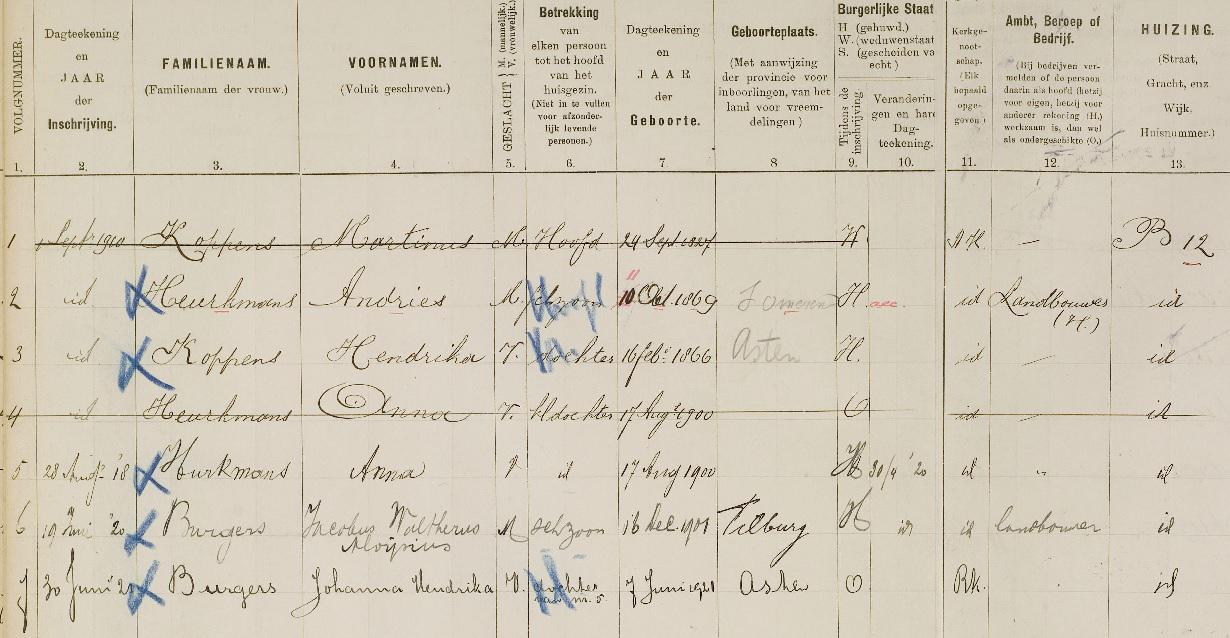 VOLG-NUMMER.
Dagteekening
en
JAAR
der
Inschrijving.
FAMILIENAAM.
(Familienaam der vrouw.)
VOORNAMEN.
(Voluit geschreven.)
GESLACHT M. (mannelijk.) V. (vrouwelijk.)
Betrekking
van
elken persoon
tot het hoofd
van het
huisgezin.
(Niet in te vullen
voor afzonder-
lijk levende
personen.)
Dagteekening
en
JAAR
der
Geboorte.
Geboorteplaats.
(Met aanwijzing
der provincie voor
inboorlingen, van het
land voor vreem-
delingen)
Burgerlijke Staat
H (gehuwd.)
W. (weduwenstaat
S. (gescheiden va
echt)
Tijdens de inschrijving
Veranderin-
gen en hare
Dag-
teekening.
Kerkge-
noot-
schap.
(Elk
bepaald
opge-
geven.)
Ambt, Beroep of
Bedrijf.
(Bij bedrijven ver-
melden of de persoon
daarin als hoofd (hetzij
voor eigen, hetzij voor
anderer rekening (H.)
werkzaam is, dan wel
als ondergeschikte (O.)
HUIZING.
(Straat,
Gracht, enz
Wijk.
Huisnummer.)
1. 2. 3. 4. 5. 6. 7. 8 9. 10. 11. 12. 13.
1 Sept 1910 Koppens Martinus M. Hoofd 24 Sept 1827 B 12
2 id Heurkmans Andries M. 10 Oct. 1869 Someren H. id Landbouwer id
(H.)
3 id Koppens Hendrika V. dochter 16 feb. 1866 Asten H. id id
4 id Heurkmans Anna V. kl dochter 17 Aug. 1900 O id id
5 28 Aug. '18 Hurkmans Anna V id 17 Aug 1900 H 30/4 '20 id id
6 19 '20 Burgers Jacobus Waltherus M schzoon 16 Dec. Tilburg H id id landbouwer id
Aloijsius
7 30 Juni 21 Burgers Johanna Hendrika V. dochter 7 Juni 1921 Asten O Rk. id
van nr. 5.